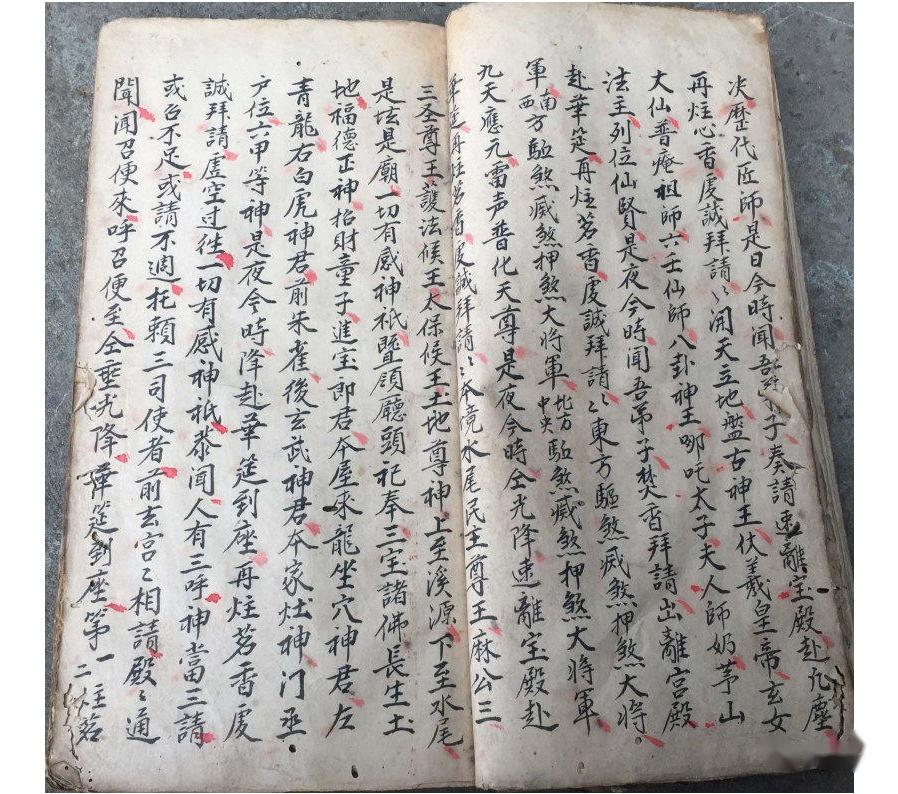 次歷代匠師是日今時聞吾弟子奏請速離宝殿赴凡塵
再炷心香虔誠拜請〻開天立地盤古神王伏羲皇帝玄女
大仙普庵祖師六壬仙師八卦神王哪吒太子夫人師奶茅山
法主列位仙賢是夜今時聞吾弟子焚香拜請出離宮殿
赴華筵再炷茗香虔誠拜請〻東方驅煞滅煞押煞大將
軍南西方駈煞滅煞押煞大將軍北方中央駈煞滅煞押煞大將軍
九天應元雷声普化天尊是夜今時仝光降速離宝殿赴
華筵再炷茗香虔誠拜請〻本境水尾民王尊王麻公三
三圣尊王護法候王太保候王土地尊神上至溪源下至水尾
是坛是廟一切有感神祇暨領廳頭祀奉三宝諸佛長生土
地福德正神招財童子進宝即君本屋來龍坐穴神君左
青龍右白虎神君前朱雀後玄武神君本家灶神门丞
户位六甲等神是夜今時降赴華筵到座再炷茗香虔
誠拜請虛空过往一切有感神祇恭闻人有三呼神當三請
或召不足或請不週托賴三司使者前去宮〻相請殿〻通
聞闻召便來呼召便至仝垂光降華筵到座第一二炷茗